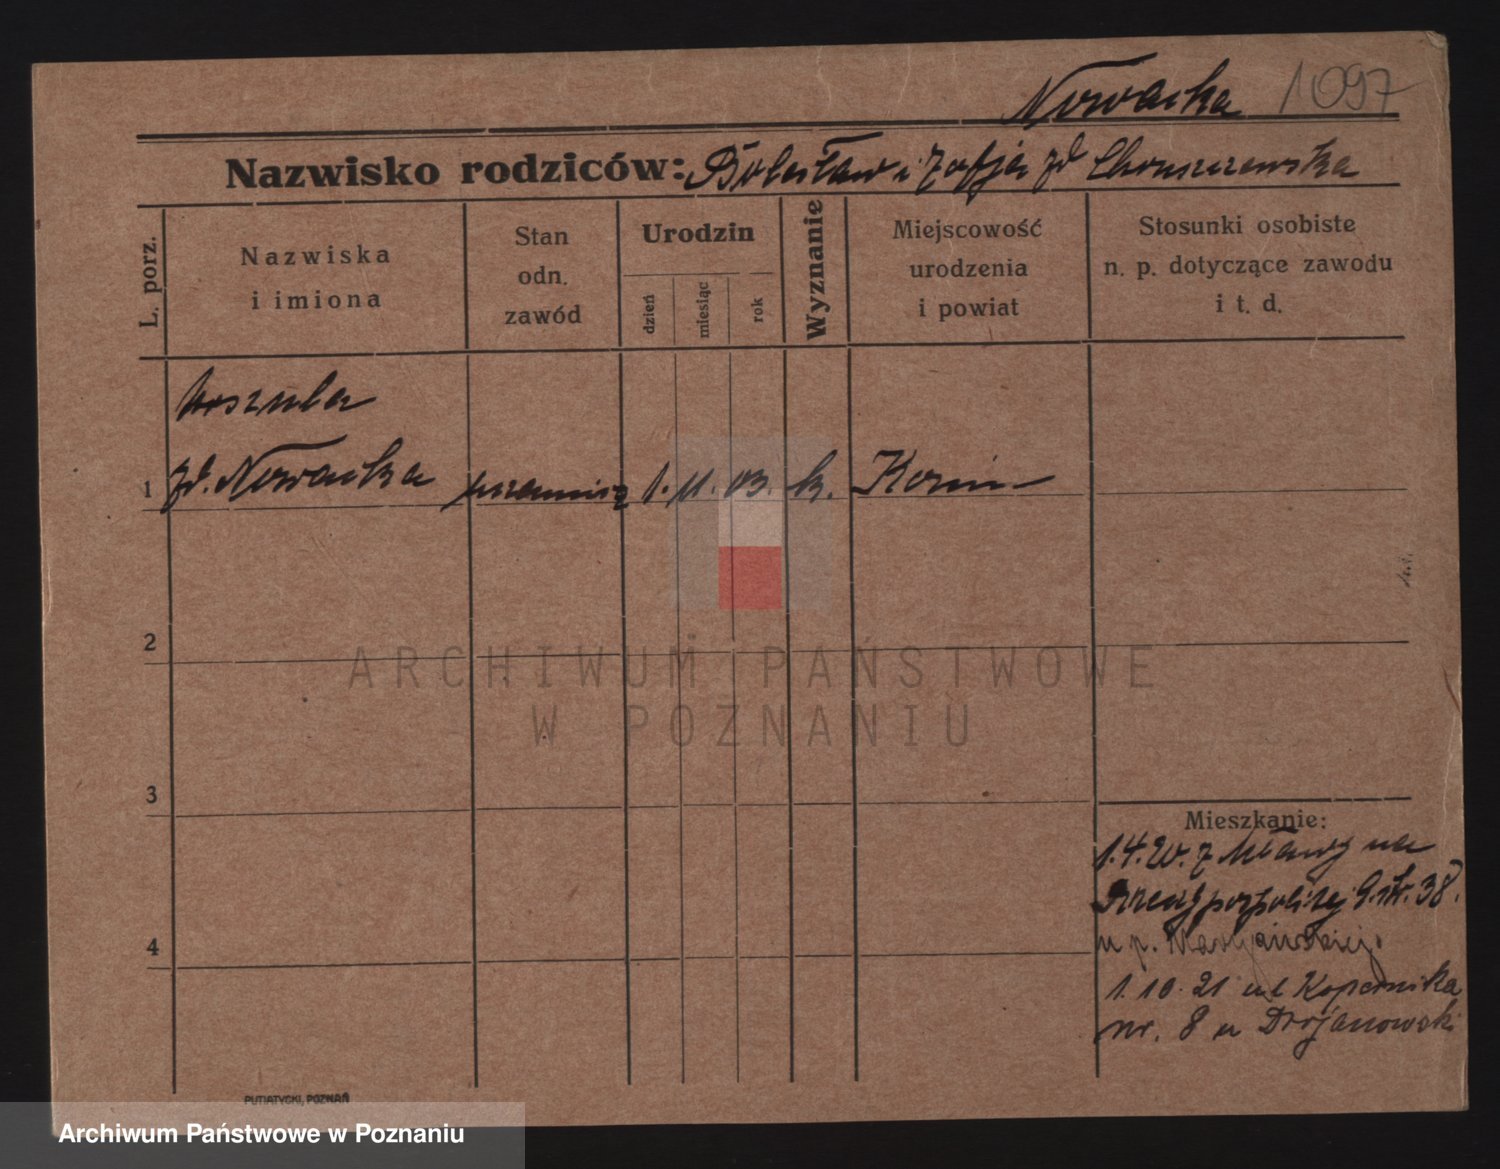 Nowacka 1097
Nazwisko rodziców: Bolesław i Zofja zd Choruszczewska
L. porz.
Nazwiska
i imiona
Stan
odn.
zawód
Urodzin
dzień
miesiąc
rok
Wyznanie
Miejscowość
urodzenia
i powiat
Stosunki osobiste
n. p. dotyczące zawodu
i t. d.
Urszula
1 zd. Nowacka 1. 11. 03. k. Konin
2
3
4
ARCHIWUM PAŃSTWOWE
W POZNANIU
Mieszkanie:
1.4.20. z Mławy na
38.
u p.
1.10.21 ul Kopernika
nr. 8 u Drojanowski
PUTIATYCKI, POZNAŃ
Archiwum Państwowe w Poznaniu